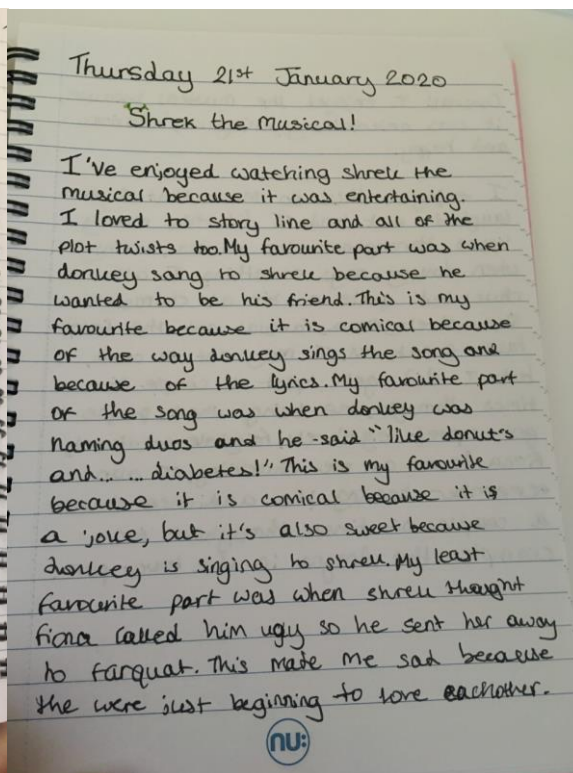 Thursday 21st January 2020
Shrek the Musical!
I've enjoyed watching shrek the
musical because it was entertaining.
I loved to story line and all of the
plot twists too. My favourite part was when
donkey sang to shrek because he
wanted to be his friend. This is my
favourite because it is comical because
of the way donkey sings the song and
because of the lyrics. My favourite part
of the song was when donkey was
naming duos and he said "like donut's
and... ... diabetes!" This is my favourite
because it is comical because it is
a joke, but it's also sweet because
donkey is singing to shrek. My least
favourite part was when shrek thought
fiona called him ugly so he sent her away
to farquat. This made me sad because
the were just beginning to love eachother.
nu: